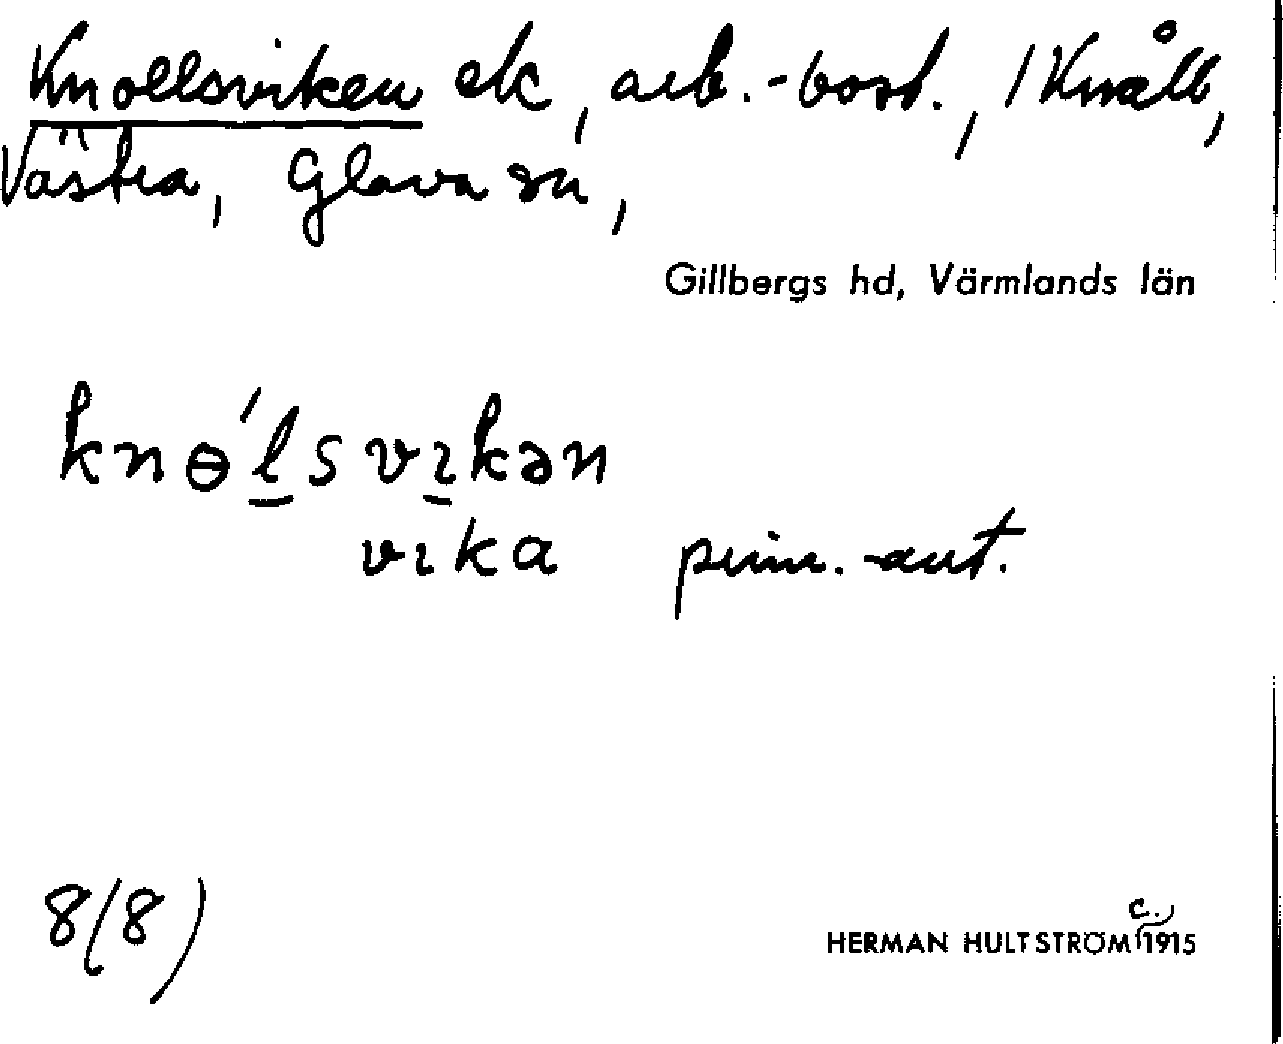 Knollsviken ek, arb.-bost., /Knåll,
Västra, Glava sn,
Gillbergs hd, Värmlands län
knɵ́lsvɪkən
vɪka prim.-aut.
8(8)
c.
HERMAN HULTSTRÖM 1915